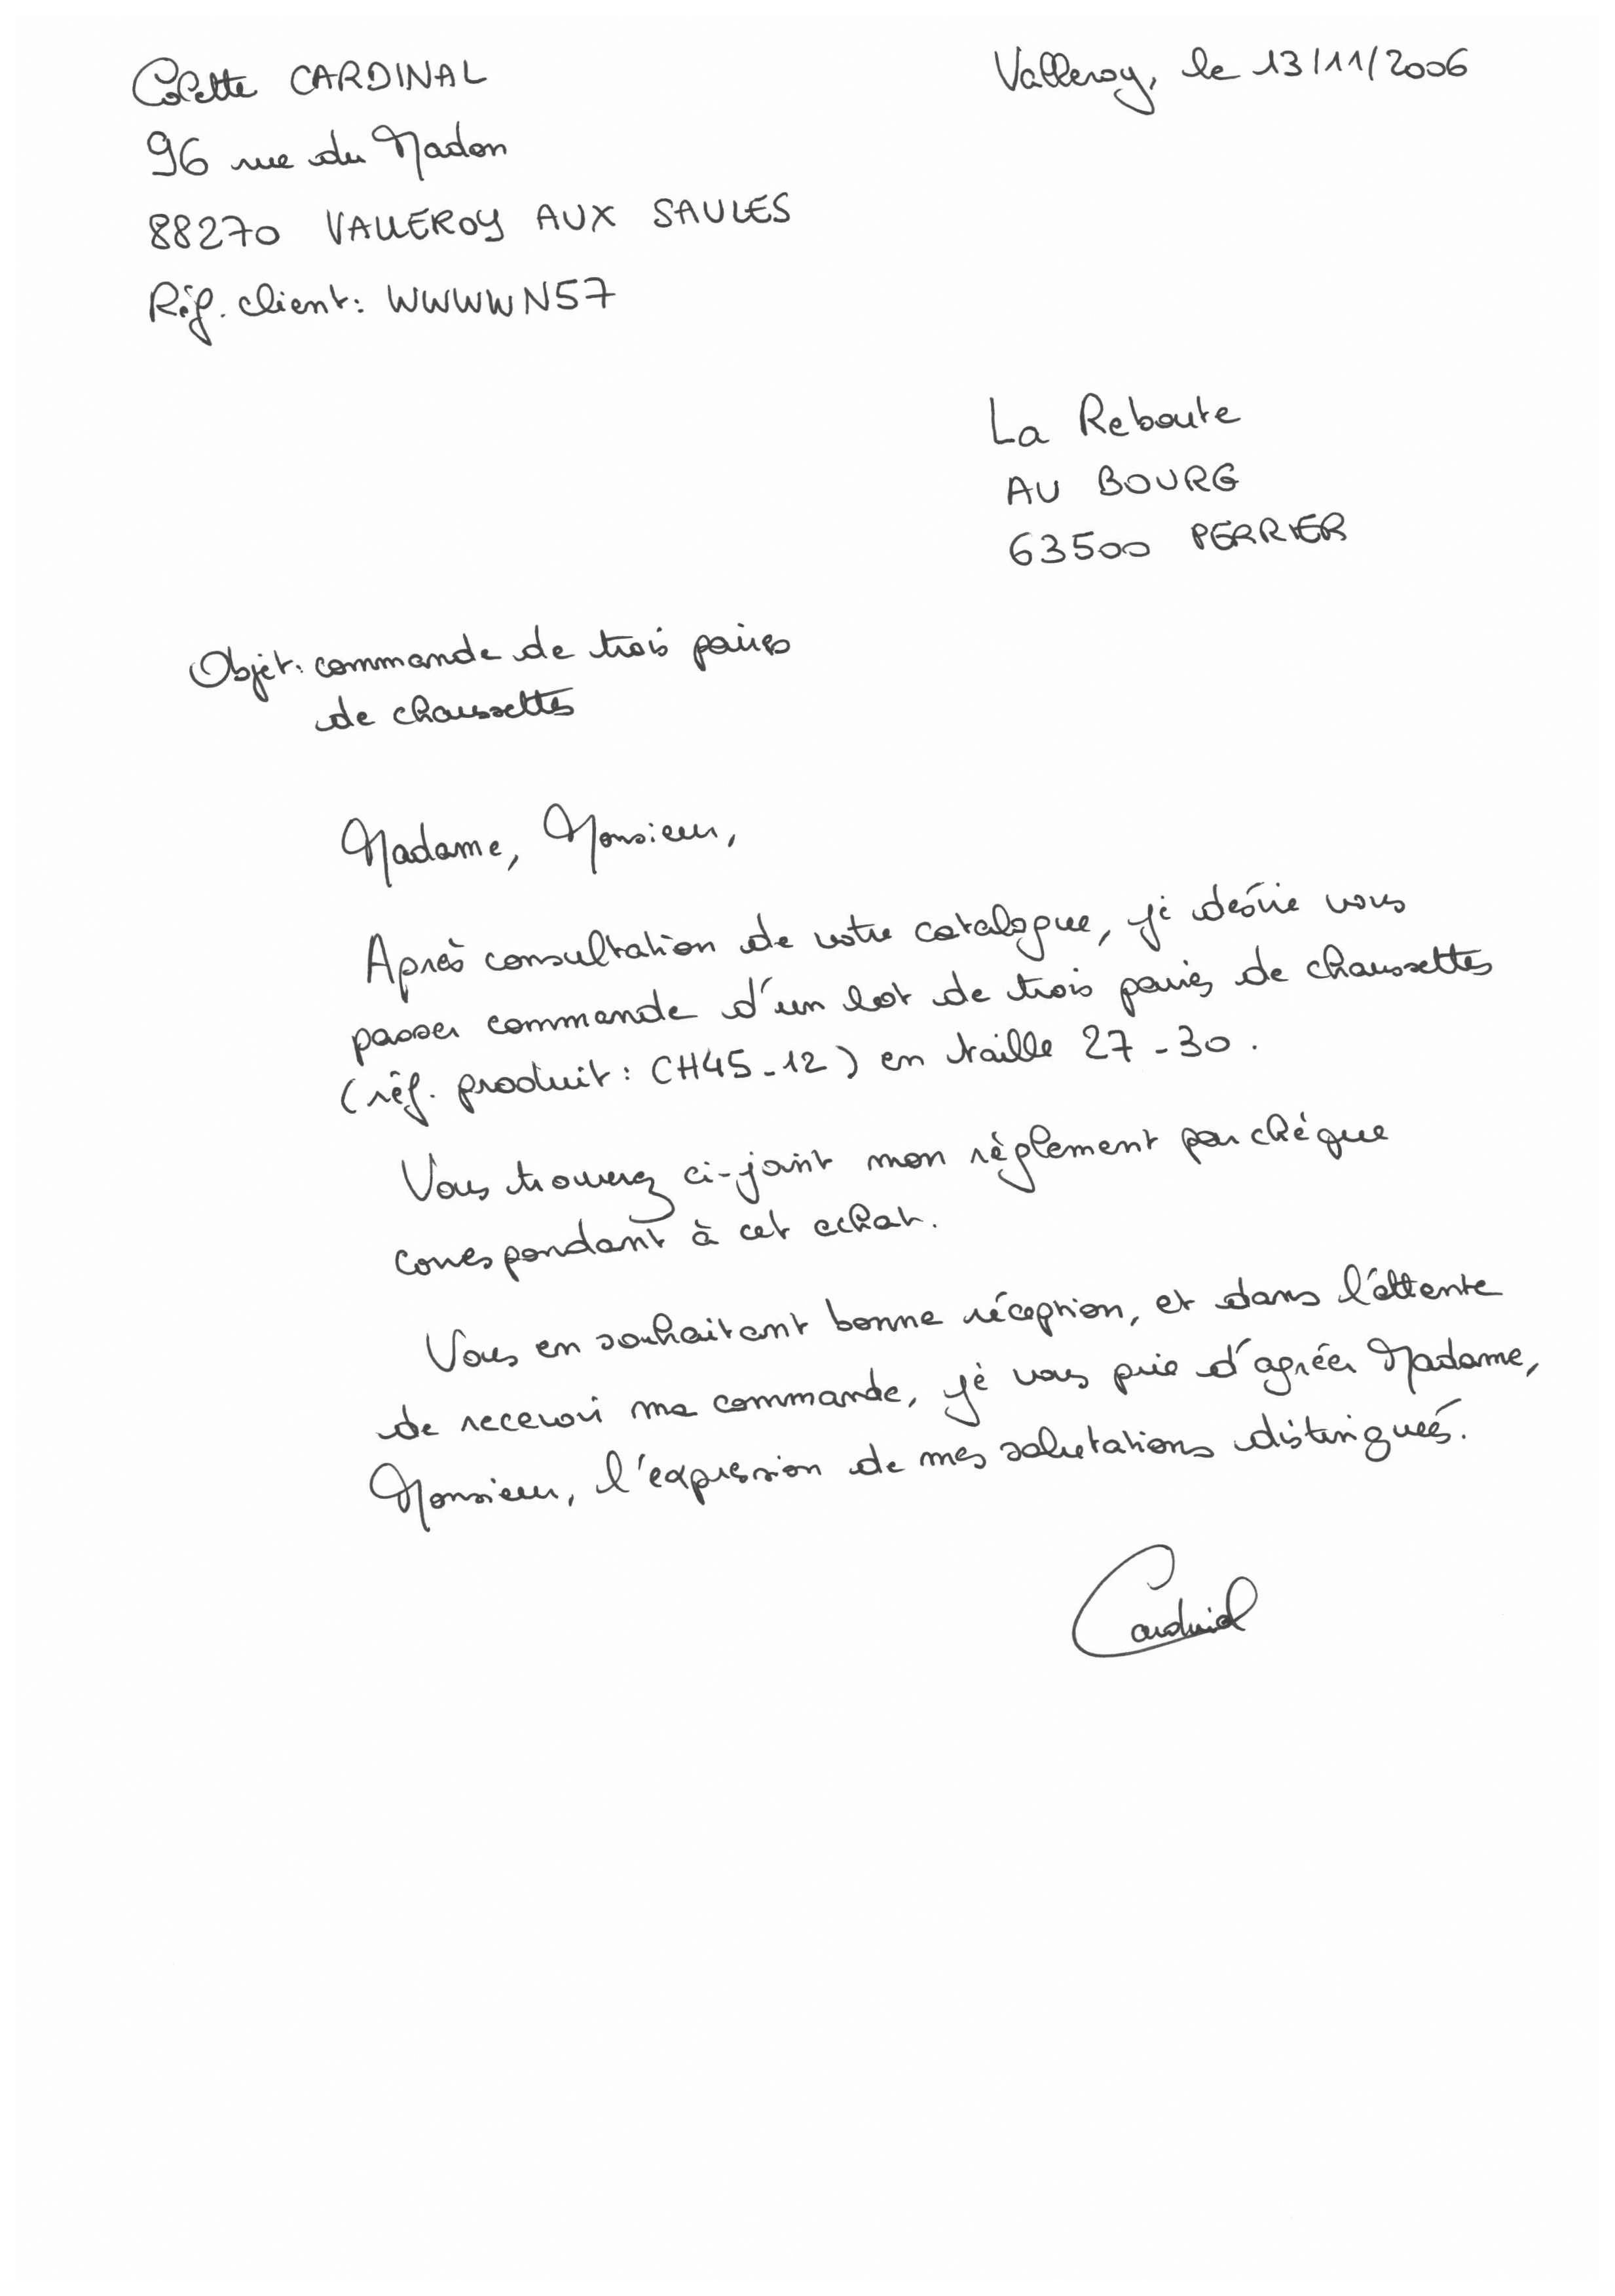 Colette CARDINAL
Valleroy, le 13/11/2006
96 rue du Madon
88270 VALLEROY AUX SAULES
Réf. client: WWWWN57
La Reboute
AU BOURG
63500 PERRIER
Objet: commande de trois paires
de chaussettes
Madame, Monsieur,
Après consultation de votre catalogue, je désire vous
passer commande d'un lot de trois paires de chaussettes
(réf. produit: CH45-12) en taille 27-30.
Vous trouverez ci-joint mon règlement par chéque
correspondant à cet achat.
Vous en souhaitant bonne réception, et dans l'attente
de recevoir ma commande, je vous prie d'agréer Madame,
Monsieur, l'expression de mes salutations distinguées.
Cardinal